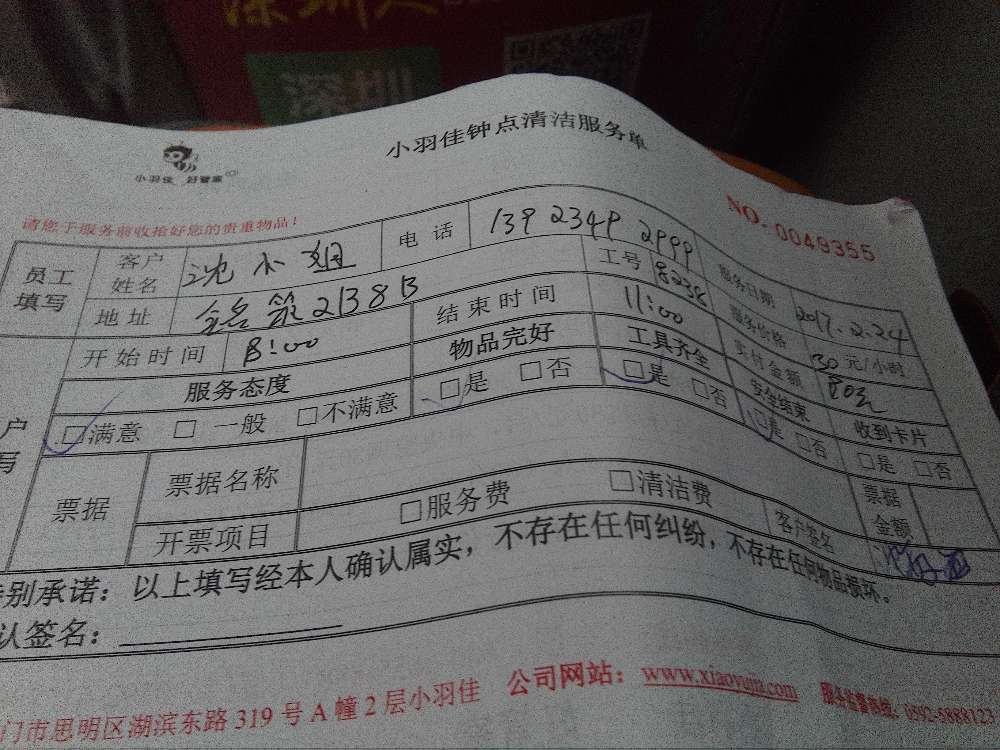 深圳
小羽佳钟点清洁服务单
小羽佳 好管家
请您于服务前收拾好您的贵重物品!
NO. 0049355
员工填写 客户姓名 沈小姐 电话 13923492999 服务日期 2017.2.24
地址 2138B 工号 8238 服务价格 30元/小时
开始时间 8:00 结束时间 11:00 实付金额
服务态度 物品完好 工具齐全 安全结束 收到卡片
□满意 □一般 □不满意 □是 □否 □是 □否 □是 □否 □是 □否
票据 票据名称 票据金额
开票项目 □服务费 □清洁费 客户签名
别承诺:以上填写经本人确认属实,不存在任何纠纷,不存在任何物品损坏。
认签名:
门市思明区湖滨东路319号A幢2层小羽佳 公司网站:www.xiaoyujia.com 服务监督热线:0592-5888123